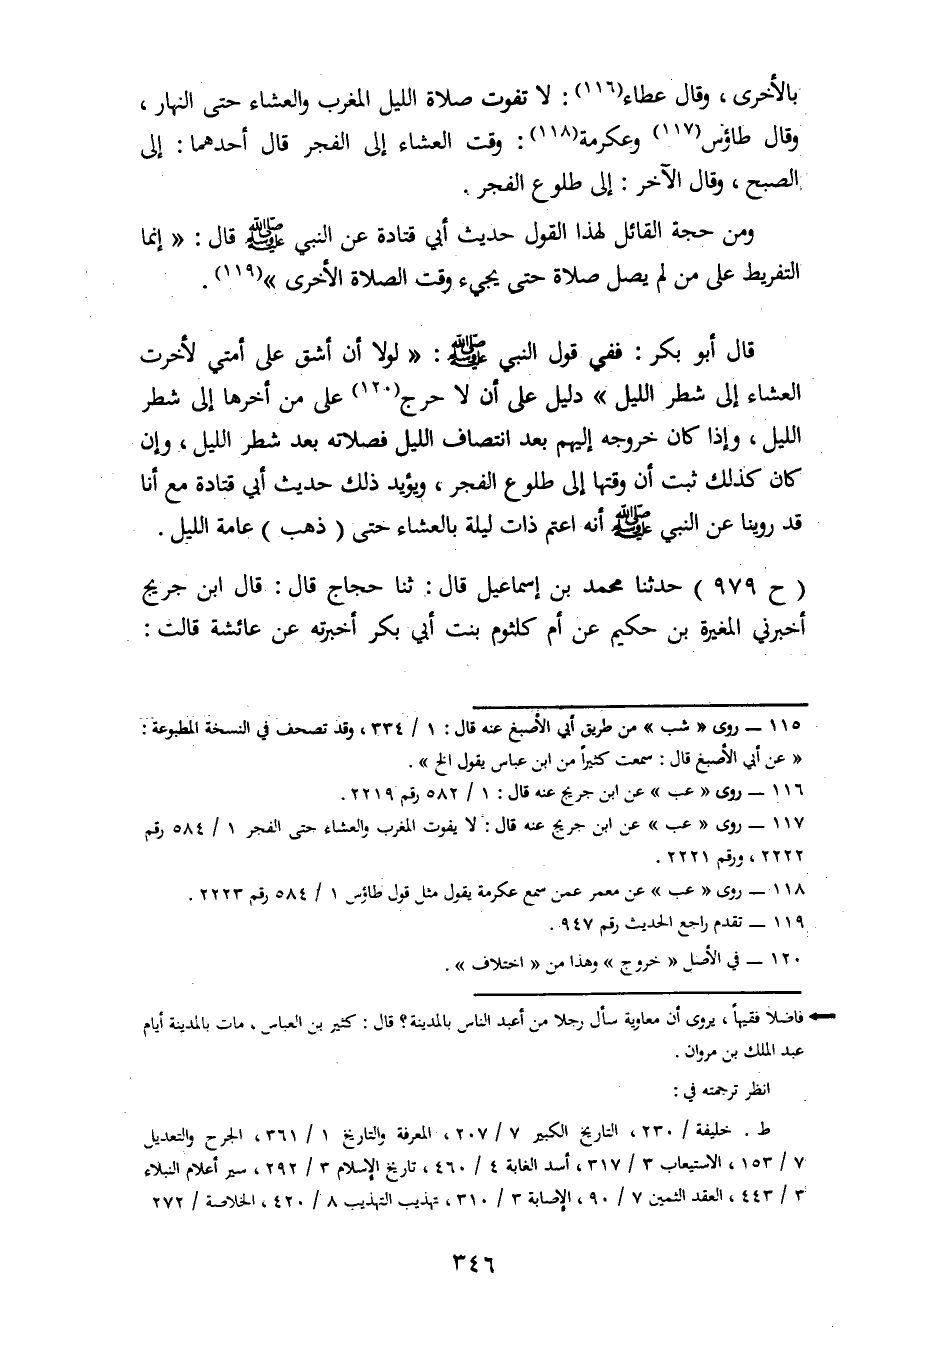 بالأخرى ، وقال عطاء(١١٦): لا تفوت صلاة الليل المغرب والعشاء حتى النهار ،
وقال طاؤس(١١٧) وعكرمة(١١٨): وقت العشاء إلى الفجر قال أحدهما : إلى
الصبح ، وقال الآخر : إلى طلوع الفجر .
ومن حجة القائل لهذا القول حديث أبي قتادة عن النبي ﷺ قال : « إنما
التفريط على من لم يصل صلاة حتى يجيء وقت الصلاة الأخرى »(١١٩) .
قال أبو بكر : ففي قول النبي ﷺ : « لولا أن أشق على أمتي لأخرت
العشاء إلى شطر الليل » دليل على أن لا حرج(١٢٠) على من أخرها إلى شطر
الليل ، وإذا كان خروجه إليهم بعد انتصاف الليل فصلاته بعد شطر الليل ، وإن
كان كذلك ثبت أن وقتها إلى طلوع الفجر ، ويؤيد ذلك حديث أبي قتادة مع أنا
قد روينا عن النبي ﷺ أنه اعتم ذات ليلة بالعشاء حتى ( ذهب ) عامة الليل .
( ح ٩٧٩ ) حدثنا محمد بن إسماعيل قال : ثنا حجاج قال : قال ابن جريج
أخبرني المغيرة بن حكيم عن أم كلثوم بنت أبي بكر أخبرته عن عائشة قالت :
١١٥ ــ روى « شب » من طريق أبي الأصبغ عنه قال : ١ / ٣٣٤ ، وقد تصحف في النسخة المطبوعة :
« عن أبي الأصبغ قال : سمعت كثيراً من ابن عباس يقول الخ » .
١١٦ ــ روى « عب » عن ابن جريج عنه قال : ١ / ٥٨٢ رقم ٢٢١٩ .
١١٧ ــ روى « عب » عن ابن جريج عنه قال : لا يفوت المغرب والعشاء حتى الفجر ١ / ٥٨٤ رقم
٢٢٢٢ ، ورقم ٢٢٢١ .
١١٨ ــ روى « عب » عن معمر عمن سمع عكرمة يقول مثل قول طاؤس ١ / ٥٨٤ رقم ٢٢٢٣ .
١١٩ ــ تقدم راجع الحديث رقم ٩٤٧ .
١٢٠ ــ في الأصل « خروج » وهذا من « اختلاف » .
فاضلا فقيهاً ، يروى أن معاوية سأل رجلا من أعبد الناس بالمدينة؟ قال : كثير بن العباس ، مات بالمدينة أيام
عبد الملك بن مروان .
انظر ترجمته في :
ط . خليفة / ٢٣٠ ، التاريخ الكبير ٧ / ٢٠٧ ، المعرفة والتاريخ ١ / ٣٦١ ، الجرح والتعديل
٧ / ١٥٣ ، الاستيعاب ٣ / ٣١٧ ، أسد الغابة ٤ / ٤٦٠ ، تاريخ الإسلام ٣ / ٢٩٢ ، سير أعلام النبلاء
٣ / ٤٤٣ ، العقد الثمين ٧ / ٩٠ ، الإصابة ٣ / ٣١٠ ، تهذيب التهذيب ٨ / ٤٢٠ ، الخلاصة / ٢٧٢
٣٤٦